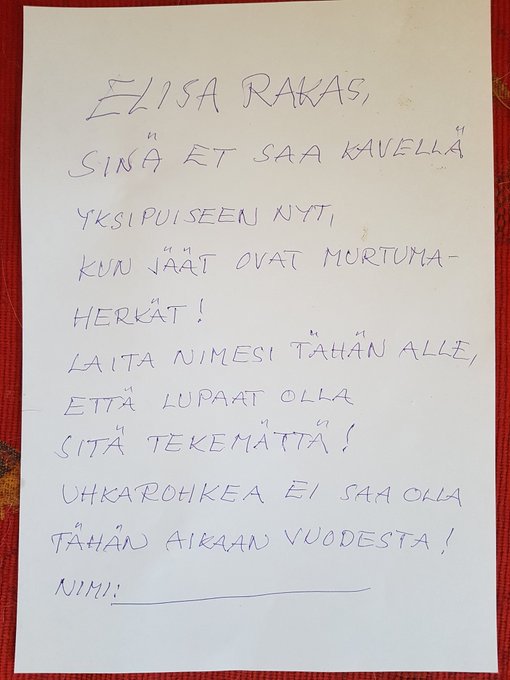 ELISA RAKAS,
SINÄ ET SAA KAVELLÄ
YKSIPUISEEN NYT,
KUN JÄÄT OVAT MURTUMA-
HERKÄT!
LAITA NIMESI TÄHÄN ALLE,
ETTÄ LUPAAT OLLA
SITÄ TEKEMÄTTÄ!
UHKAROHKEA EI SAA OLLA
TÄHÄN AIKAAN VUODESTA!
NIMI: